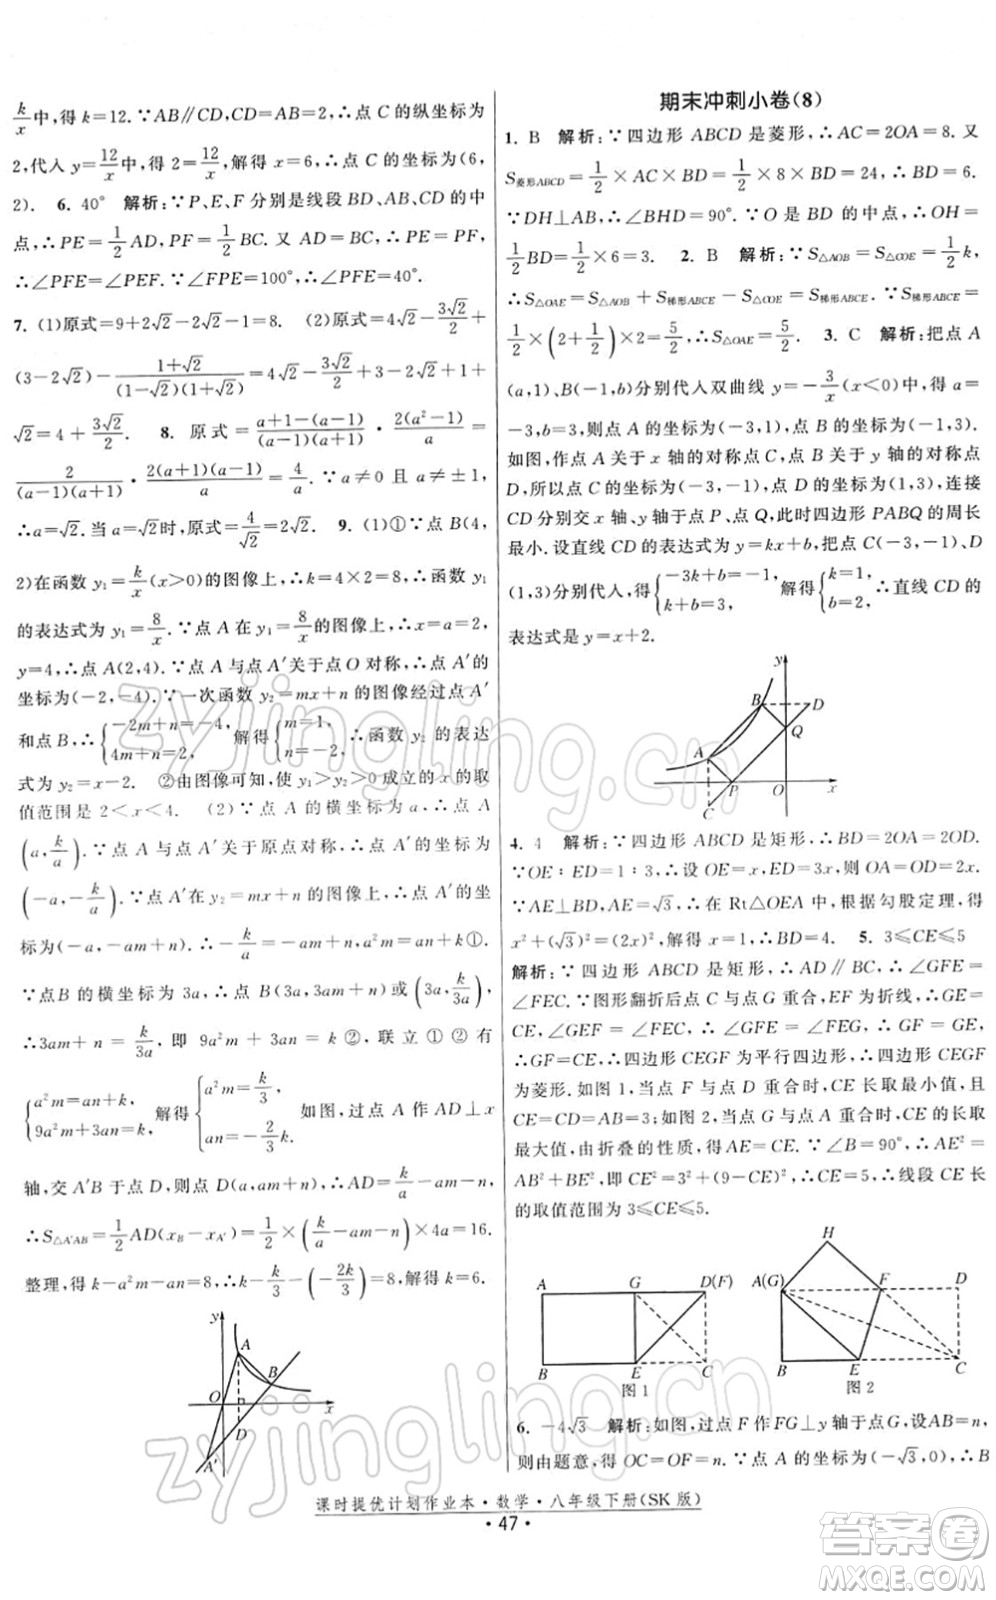 k/x中,得 k=12. ∵AB∥CD,CD=2,∴点 C 的纵坐标为
2,代入 y=12/x中,得 2=12/x,解得 x=6,∴点 C 的坐标为(6,
2). 6. 40° 解析:∵P、E、F 分别是线段 BD、AB、CD 的中
点,∴PE=1/2 AD,PF=1/2 BC. 又 AD=BC,∴PE=PF,
∴∠PFE=∠PEF. ∵∠FPE=100°,∴∠PFE=40°.
7. (1)原式=9+2√2-2√2-1=8. (2)原式=4√2-3√2/2+
(3-2√2)-(1+√2)/((1-√2)(1+√2))=4√2-3√2/2+3-2√2+1+
√2=4+3√2/2. 8. 原式=(a+1-(a-1))/((a-1)(a+1))·2(a²-1)/a=
2/((a-1)(a+1))·2(a+1)(a-1)/a=4/a. ∵a≠0 且 a≠±1,
∴a=√2. 当 a=√2时,原式=4/√2=2√2. 9. (1)①∵点 B(4,
2)在函数 y₁=k/x(x>0)的图像上,∴k=8,∴函数 y₁
的表达式为 y₁=8/x. ∵点 A 在函数的图像上,∴a=2,
y=4,∴点 A(2,4). ∵点 A 与点 A′关于点 O 对称,∴点 A′的
坐标为(-2,-4). ∵一次函数 y₂=mx+n 的图像经过点 A′
和点 B,∴{-2m+n=-4, 4m+n=2, 解得{m=1, n=-2, ∴函数 y₂ 的表达
式为 y₂=x-2. ②由图像可知,使 y₁>y₂>0成立的 x 的取
值范围是 2<x<4. (2)∵点 A 的横坐标为 a,∴点 A
(a,k/a). ∵点 A 与点 A′关于原点对称,∴点 A′的坐标为
(-a,-k/a). ∵点 A′在 y₂=mx+n 的图像上,∴点 A′的坐
标为(-a,-am+n). ∴-k/a=-am+n,∴a²m=an+k①.
∵点B 的横坐标为 3a,∴点 B(3a,3am+n)或(3a,k/3a),
∴3am+n=k/3a,即 9a²m+3an=k ②,联立①②,有
{a²m=an+k, 9a²m+3an=k, 解得{a²m=k/3, an=-2/3k. 如图,过点 A 作 AD⊥x
轴,交 A′B 于点 D,则点 D(a,am+n),∴AD=k/a-am-n,
∴S△A′AB=1/2 AD(x_B-x_A′)=1/2×(k/a-am-n)×4a=16.
整理,得 k-a²m-an=8,∴k-k/3-(-2k/3)=8,解得 k=6.
y
A
B
O
x
D
A′
期末冲刺小卷(8)
1. B 解析:∵四边形 ABCD 是菱形,∴AC=2OA=8. 又
S菱形ABCD=1/2×AC×BD=1/2×8×BD=24,∴BD=6.
∵DH⊥AB,∴∠BHD=90°. ∵O 是 BD 的中点,∴OH=
1/2BD=1/2×6=3. 2. B 解析:∵S△AOB=S△COE=1/2k,
∴S△OAE=S△AOB+S梯形ABCE-S△COE=S梯形ABCE. ∵S梯形ABCE=
1/2×(2+1/2)×2=5/2,∴S△OAE=5/2. 3. C 解析:把点 A
(a,1)、B(-1,b)分别代入双曲线 y=-3/x(x<0)中,得 a=
-3,b=3,则点 A 的坐标为(-3,1),点 B 的坐标为(-1,3).
如图,作点 A 关于 x 轴的对称点 C,点 B 关于 y 轴的对称点
D,所以点 C 的坐标为(-3,-1),点 D 的坐标为(1,3),连接
CD分别交 x 轴、y 轴于点 P、点 Q,此时四边形 PABQ 的周长
最小. 设直线 CD 的表达式为 y=kx+b,点 C(-3,-1)、D
(1,3)分别代入,得{-3k+b=-1, k+b=3, 解得{k=1, b=2, ∴直线 CD 的
表达式是 y=x+2.
y
B
D
Q
A
P
O
x
C
4. 4 解析:∵四边形 ABCD 是矩形,∴BD=2OA=2OD.
∵OE∶ED=1∶3,∴设 OE=x,ED=3x,则 OA=OD=2x.
∵AE⊥BD,AE=√3,∴在 Rt△OEA 中,根据勾股定理,得
x²+(√3)²=(2x)²,解得 x=1,∴BD=4. 5. 3≤CE≤5
解析:∵四边形 ABCD 是矩形,∴AD∥BC,∴∠GFE=
∠FEC. ∵图形翻折后点 C 与点G 重合,EF 为折线,∴GE=
CE,∠GEF=∠FEC,∴∠GFE=∠FEG,∴GF=GE,
∴GF=CE,∴四边形 CEGF 为平行四边形,∴四边形CEGF
为菱形. 如图 1,当点 F 与点 D 重合时,CE 取最小值,且
CE=CD=AB=3;如图 2,当点 G 与点 A 重合时,CE 的长取
最大值,由折叠的性质,得 AE=CE. ∵∠B=90°,∴AE²=
AB²+BE²,即 CE²=3²+(9-CE)²,∴CE=5,∴线段 CE 长
的取值范围为 3≤CE≤5.
A G D(F)
B E C
图 1
H
A(G) F D
B E C
图 2
6. -4√3 解析:如图,过点 F 作 FG⊥y 轴于点 G,设AB=n,
则由题意,得 OC=OA=BC=AB=n. ∵点 A(-√3,0),∴
课时提优计划作业本·数学·八年级下册(SK 版)
·47·
zyjingling.cn
zyjingling.cn
答案圈
MXQE.COM